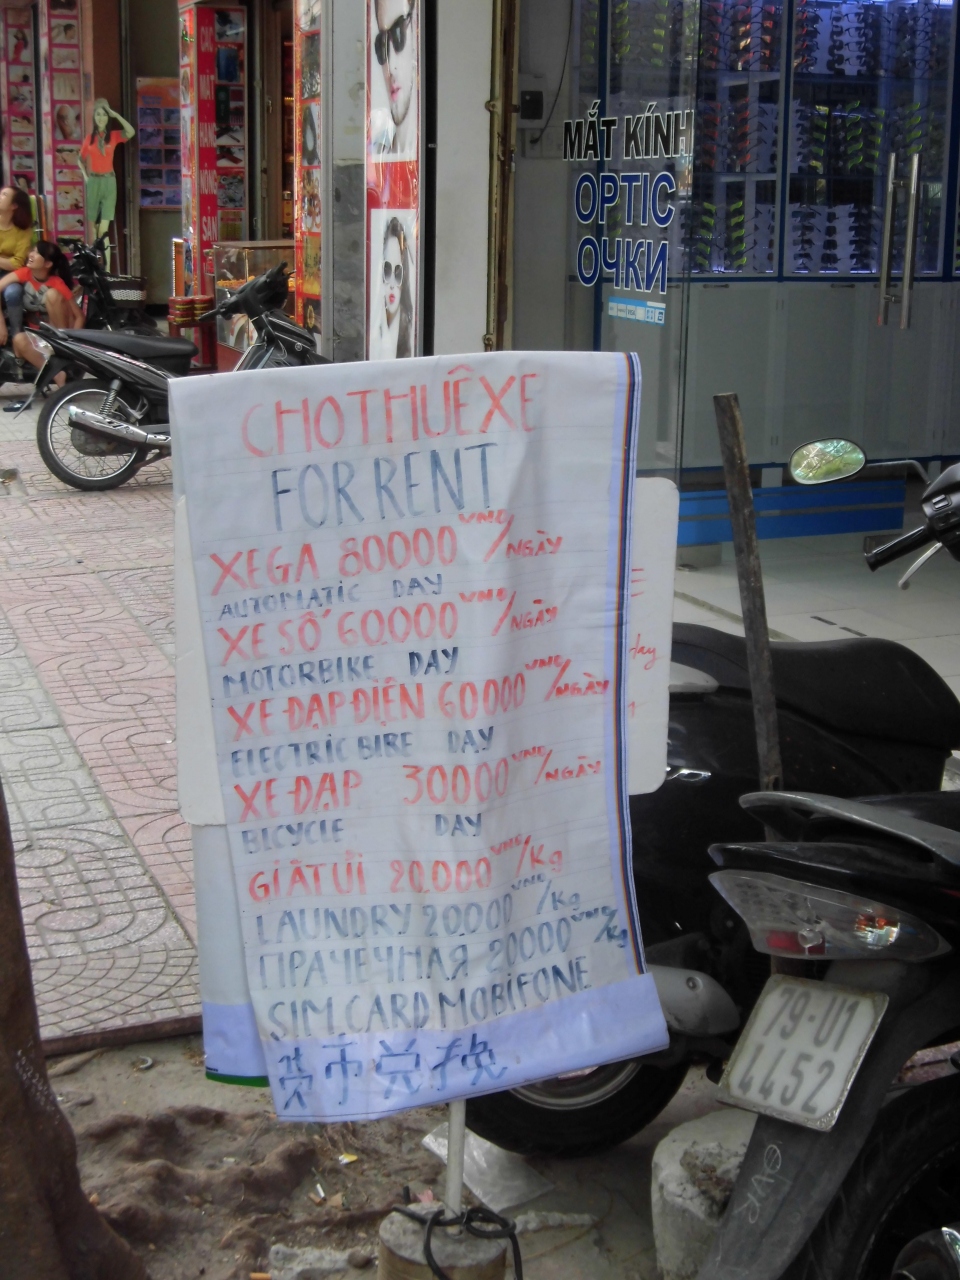 MẮT KÍNH
OPTIC
ОЧКИ
CHO THUÊ XE
FOR RENT
XE GA 80000 VNĐ/NGÀY
AUTOMATIC DAY
XE SỐ 60.000 VNĐ/NGÀY
MOTORBIKE DAY
XE ĐẠP ĐIỆN 60000 VNĐ/NGÀY
ELECTRIC BIRE DAY
XE ĐẠP 30000 VNĐ/NGÀY
BICYCLE DAY
GIẶT ỦI 20.000 VNĐ/Kg
LAUNDRY 20000 VNĐ/Kg
ПРАЧЕЧНАЯ 20000 VNĐ/Kg
SIM.CARD MOBIFONE
货币兑换
day
79-U1
4452